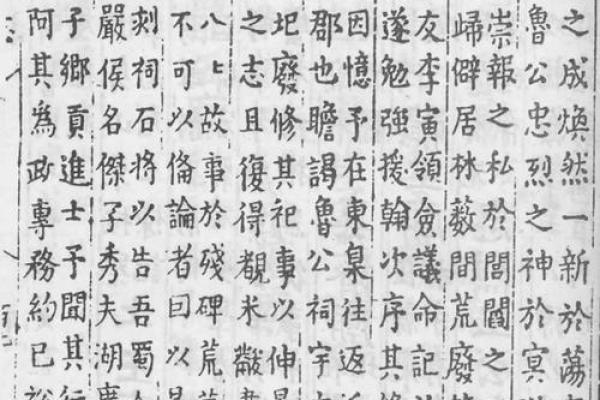 之成煥然一新於蕩
魯公忠烈之神於冥
崇報之私於閭閻之
歸僻居林薮間荒廢
友李寅領僉議命記
遂勉強援翰次序其
因憶予在東臬往返
郡也瞻謁魯公祠宇
圯廢修其祀事以伸
之志且復得覩米黻
八〻故事於殘碑荒
不可以偹論者回以
刻祠石將以告吾蜀
嚴侯名傑子秀夫湖
子鄉貢進士予聞其行
阿其爲政專務約已裕